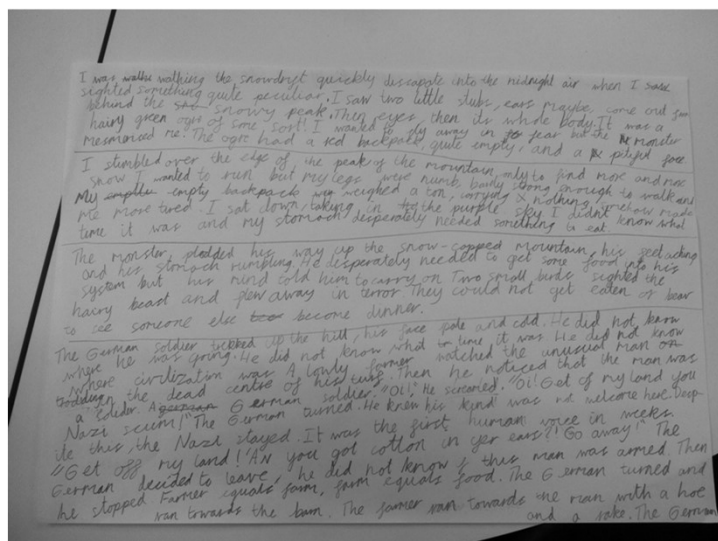 I was watching the snowdrift quickly dissapate into the midnight air when I
sighted something quite peculiar. I saw two little stubs, ears maybe, come out from
behind the snowy peak. Then eyes, then its whole body. It was a
hairy green ogre of some sort! I wanted to fly away in fear but the monster
mesmorized me. The ogre had a red backpack, quite empty, and a pitiful face
I stumbled over the edge of the peak of the mountain, only to find more and more
snow. I wanted to run but my legs were numb, barly strong enough to walk and
My empty backpack weighed a ton, carrying nothing, somehow made
me more tired. I sat down, taking in the purple sky. I didn't know what
time it was and my stomach desperately needed something to eat.
The monster plodded his way up the snow-capped mountain, his feet aching
and his stomach rumbling. He desperately needed to get some food into his
system but his mind told him to carry on. Two small birds sighted the
hairy beast and flew away in terror. They could not get eaten or bear
to see someone else become dinner.
The German soldier trekked up the hill, his face pale and cold. He did not know
where he was going. He did not know what time it was. He did not know
where civilization was. A lonly farmer watched the unusual man
in the dead centre of his turf. Then he noticed that the man was
a soldier. A German soldier. "Oi!" He screamed. "Oi! Get of my land you
Nazi scum!" The German turned. He knew his kind was not welcome here. Desp-
ite this, the Nazi stayed. It was the first human voice in weeks.
"Get off my land! 'AV you got cotton in yer ears?! Go away!" The
German decided to leave, he did not know if this man was armed. Then
he stopped. Farmer equals farm, farm equals food. The German turned and
ran towards the barn. The farmer ran towards the man with a hoe
and a rake. The German